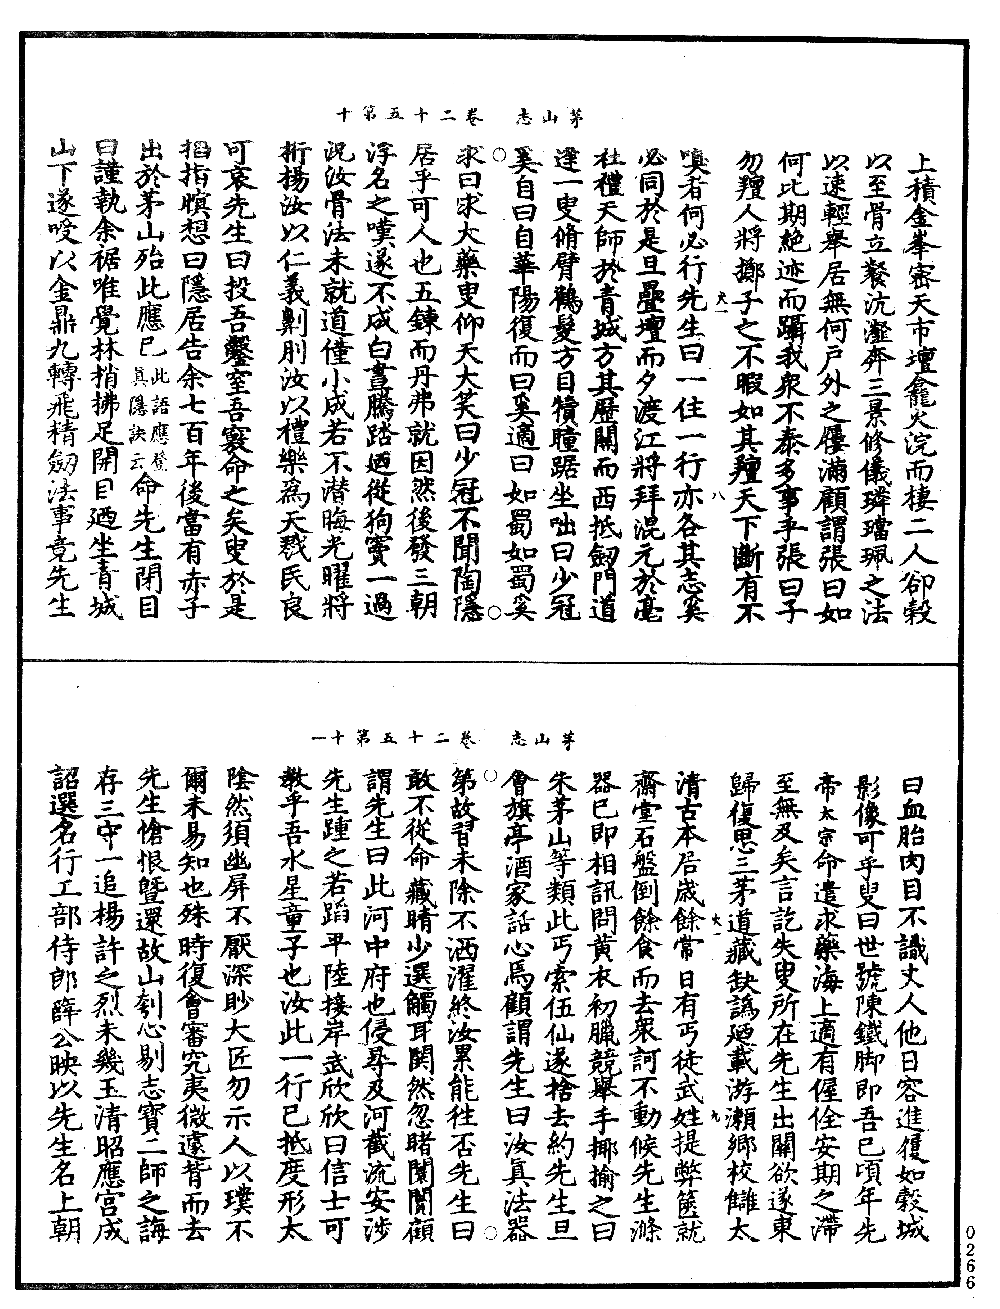 茅山志　卷二十五第十
上積金峯密天市壇龕火浣而棲二人卻穀
以至骨立餐沆瀣奔三景修儀璘璫珮之法
以速輕舉居無何戶外之屨滿顧謂張曰如
何比期絶迹而躡我衆不泰多事乎張曰子
勿羶人將擲子之不暇如其羶天下斷有不
嗔者何必行先生曰一住一行亦各其志奚
必同於是旦疊壇而夕渡江將拜混元於亳
社禮天師於青城方其歷關而西抵劒門道
逢一叟脩臂鶴髮方目犢瞳踞坐咄曰少冠
奚自曰自華陽復而曰奚適曰如蜀如蜀奚
求曰求大藥叟仰天大笑曰少冠不聞陶隱
居乎可人也五鍊而丹弗就因然後發三朝
浮名之嘆遂不成白晝騰踏廼從狗竇一過
況汝骨法未就道僮小成若不潛晦光曜將
桁楊汝以仁義劓刖汝以禮樂爲天戮民良
可哀先生曰投吾鑿室吾竅命之矣叟於是
搯指瞋想曰隱居告余七百年後當有赤子
出於茅山殆此應已此語應登真隱訣云命先生閉目
曰謹執余裾唯覺林梢拂足開目廼坐青城
山下遂唆以金鼎九轉飛精劒法事竟先生
茅山志　卷二十五第十一
曰血胎肉目不識丈人他日容進履如穀城
影像可乎叟曰世號陳鐵脚即吾已頃年先
帝太宗命遣求藥海上適有偓佺安期之滯
至無及矣言訖失叟所在先生出關欲遂東
歸復思三茅道藏缺譌廼載游瀨鄉校讎太
清古本居歲餘常日有丐徒武姓提弊篋就
齋堂石盤倒餘食而去衆訶不動候先生滌
器已即相訊問黄衣初臘競舉手揶揄之曰
朱茅山等類此丐索伍仙遂捨去約先生旦
會旗亭酒家話心焉顧謂先生曰汝真法器
第故習未除不洒濯終汝累能往否先生曰
敢不從命藏睛少選觸耳閧然忽睹闤闠顧
謂先生曰此河中府也侵尋及河截流安涉
先生踵之若蹈平陸接岸武欣欣曰信士可
教乎吾水星童子也汝此一行已抵度形太
陰然須幽屏不厭深眇大匠勿示人以璞不
爾未易知也殊時復會審究夷微遠背而去
先生愴恨曁還故山刳心剔志寶二師之誨
存三守一追楊許之烈未幾玉清昭應宮成
詔選名行工部侍郎薛公映以先生名上朝
0266